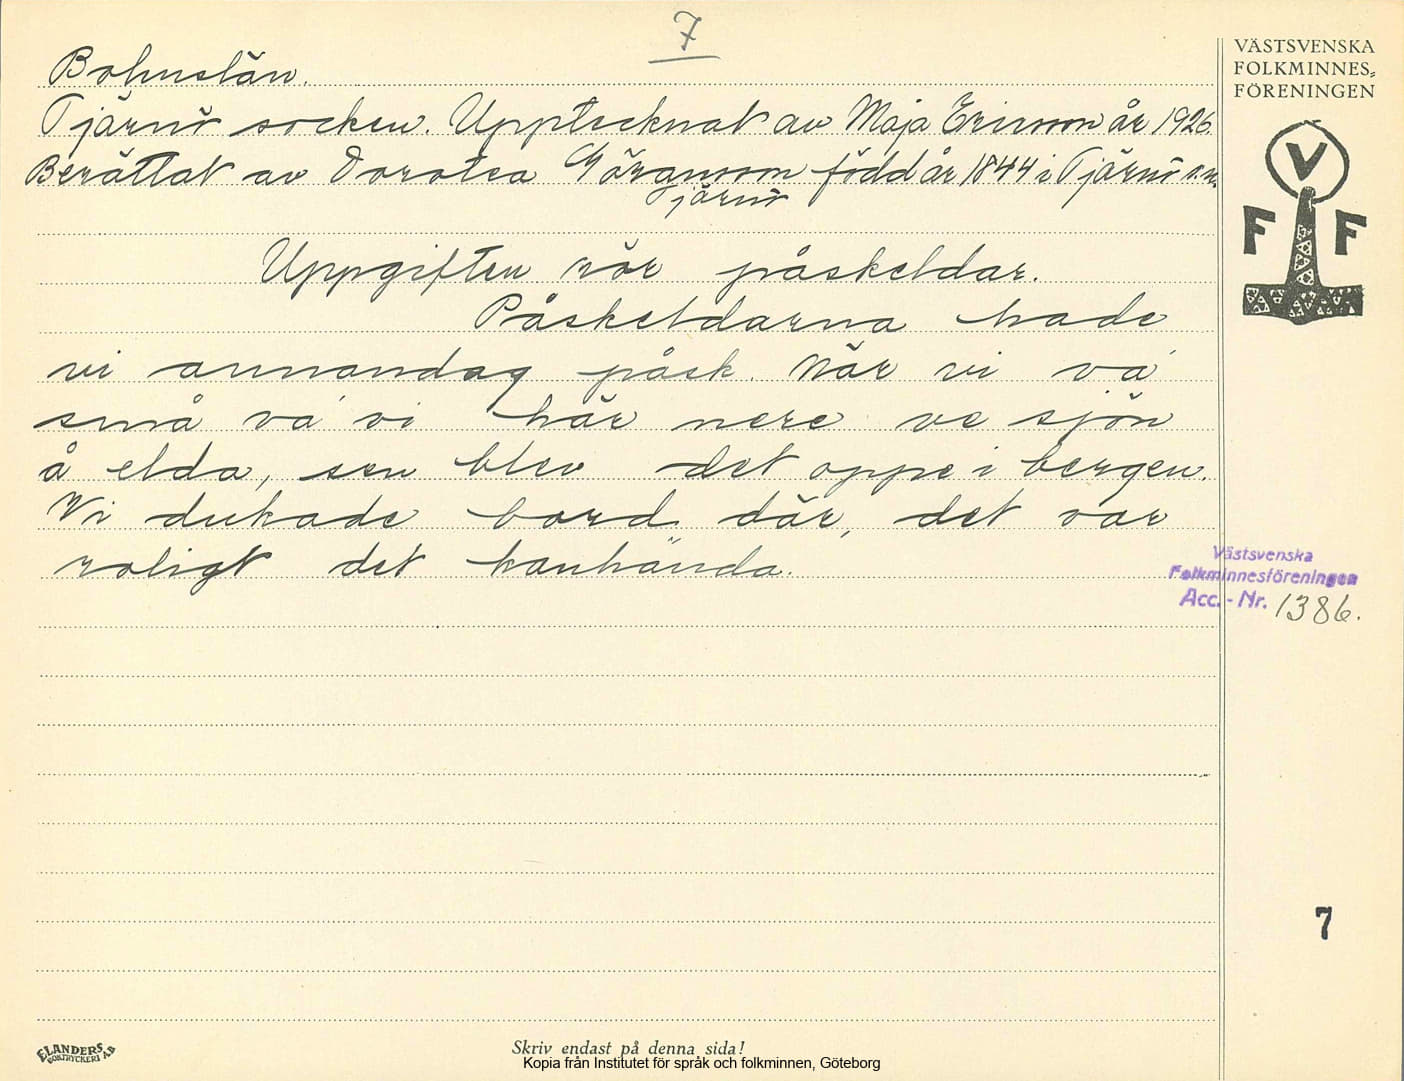 7
Bohuslän.
Tjärnö socken. Upptecknat av Maja Ericsson år 1926.
Berättat av Dorotea Göransson född år 1844 i Tjärnö s.n.
Tjärnö
Uppgiften rör påskeldar.
Påskeldarna hade
vi annandag påsk. När vi vá
små vá vi här nere ve sjön
å elda, sen blev det oppe i bergen.
Vi dukade bord där, det var
roligt det kanhända.
VÄSTSVENSKA
FOLKMINNES-
FÖRENINGEN
V
F F
Västsvenska
Folkminnesföreningen
Acc. - Nr. 1386.
7
ELANDERS
BOKTRYCKERI A.B
Skriv endast på denna sida!
Kopia från Institutet för språk och folkminnen, Göteborg